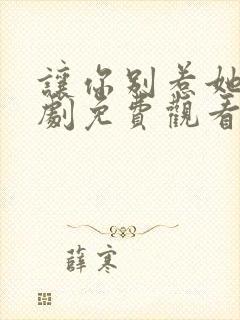 讓你別惹她
劇免費觀看
薛寒